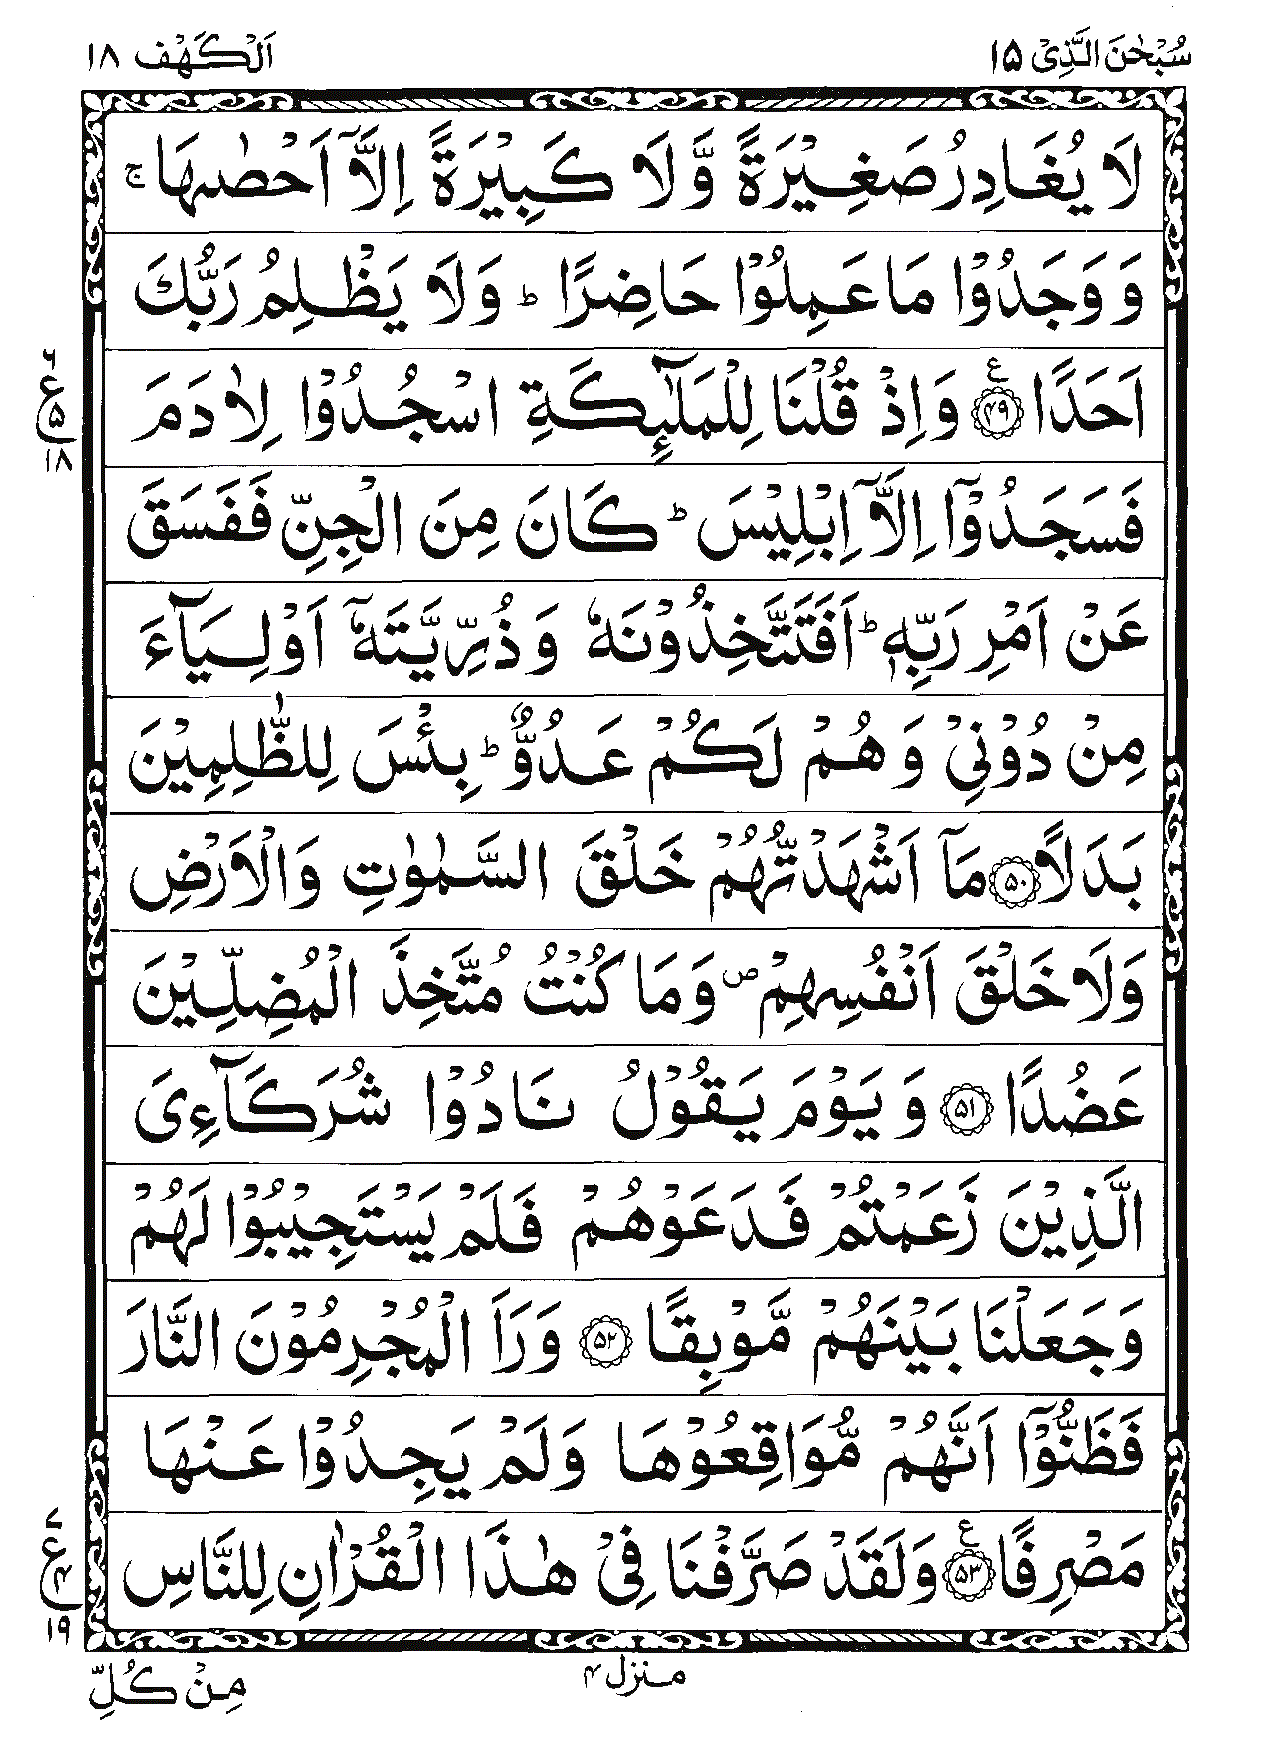 سُبْحٰنَ الَّذِیْ ۱۵
اَلْكَهْف ۱۸
لَا یُغَادِرُ صَغِیْرَةً وَّ لَا كَبِیْرَةً اِلَّاۤ اَحْصٰىهَا ۚ
وَ وَجَدُوْا مَا عَمِلُوْا حَاضِرًا ؕ وَلَا یَظْلِمُ رَبُّكَ
اَحَدًا ۴۹ ع وَاِذْ قُلْنَا لِلْمَلٰٓىِٕكَةِ اسْجُدُوْا لِاٰدَمَ
فَسَجَدُوْۤا اِلَّاۤ اِبْلِیْسَ ؕ كَانَ مِنَ الْجِنِّ فَفَسَقَ
عَنْ اَمْرِ رَبِّهٖ ؕ اَفَتَتَّخِذُوْنَهٗ وَ ذُرِّیَّتَهٗۤ اَوْلِیَآءَ
مِنْ دُوْنِیْ وَ هُمْ لَكُمْ عَدُوٌّ ؕ بِئْسَ لِلظّٰلِمِیْنَ
بَدَلًا ۵۰ مَاۤ اَشْهَدْتُّهُمْ خَلْقَ السَّمٰوٰتِ وَالْاَرْضِ
وَلَا خَلْقَ اَنْفُسِهِمْ ۪ وَمَا كُنْتُ مُتَّخِذَ الْمُضِلِّیْنَ
عَضُدًا ۵۱ وَ یَوْمَ یَقُوْلُ نَادُوْا شُرَكَآءِیَ
الَّذِیْنَ زَعَمْتُمْ فَدَعَوْهُمْ فَلَمْ یَسْتَجِیْبُوْا لَهُمْ
وَجَعَلْنَا بَیْنَهُمْ مَّوْبِقًا ۵۲ وَرَاَ الْمُجْرِمُوْنَ النَّارَ
فَظَنُّوْۤا اَنَّهُمْ مُّوَاقِعُوْهَا وَلَمْ یَجِدُوْا عَنْهَا
مَصْرِفًا ۵۳ ع وَلَقَدْ صَرَّفْنَا فِیْ هٰذَا الْقُرْاٰنِ لِلنَّاسِ
۶
ع
۵
۱۸
۷
ع
۴
۱۹
منزل ۴
مِنْ كُلِّ